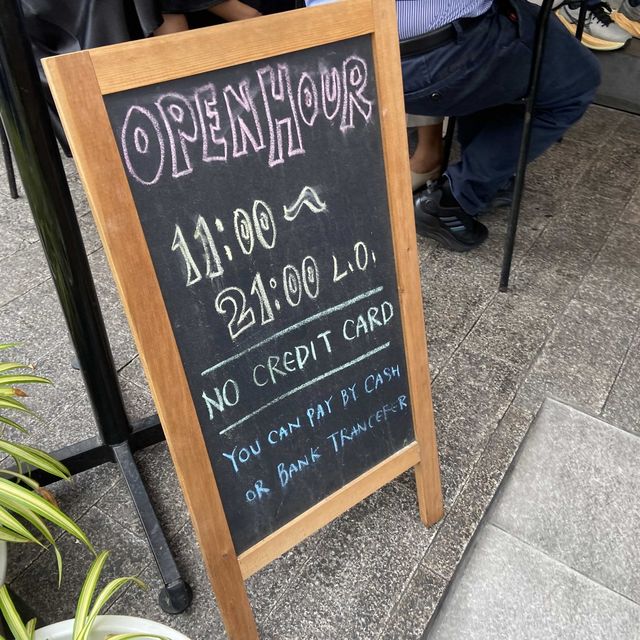 OPEN HOUR
11:00 ~
21:00 L.O.
NO CREDIT CARD
YOU CAN PAY BY CASH
OR BANK TRANCEFER